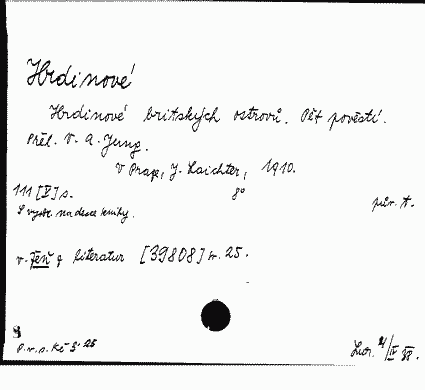 Hrdinové
Hrdinové britských ostrovů. Pět pověstí.
Přel. V. A. Jung.
V Praze, J. Laichter, 1910.
111 [V] s. 8°
pův. t.
S vyobr. na desce knihy.
v. Žeň z literatur [39808] sv. 25.
8
P.v.s. Kč 5·25